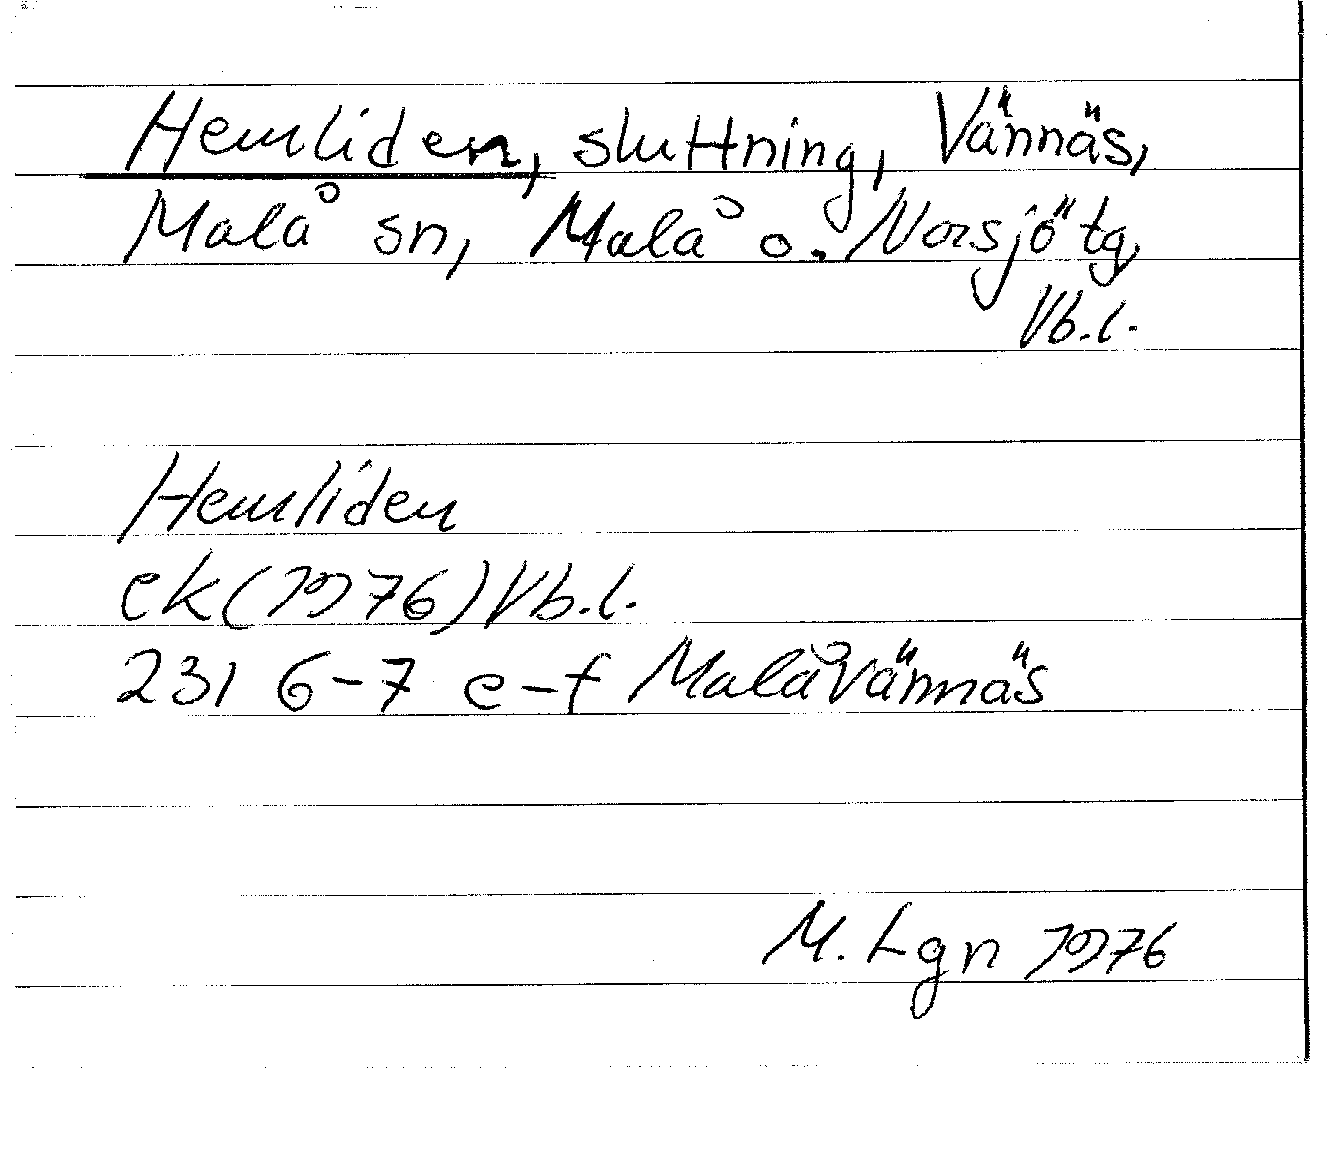 Hemliden, sluttning, Vännäs,
Malå sn, Malå o. Norsjö tg,
Vb.l.
Hemliden
ek (1976) Vb.l.
231 6-7 e-f Malåvännäs
M. Lgn 1976